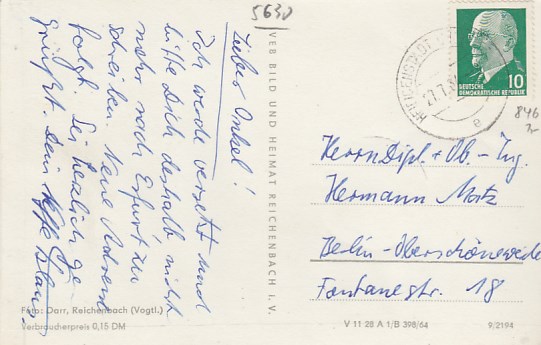 5630
Lieber Onkel!
Ich werde versetzt und
bitte Dich deshalb nicht
mehr nach Erfurt zu
schreiben. Neue Adresse
folgt. Sei herzlich ge-
grüßt. Dein Neffe Klaus
Foto: Darr, Reichenbach (Vogtl.)
Verbraucherpreis 0,15 DM
VEB BILD UND HEIMAT REICHENBACH I. V.
10
DEUTSCHE
DEMOKRATISCHE REPUBLIK
27.7.
e
846
Herrn Dipl. + Ob.-Ing.
Hermann Motz
Berlin-Oberschöneweide
Fontanestr. 18
V 11 28 A 1/B 398/64
9/2194